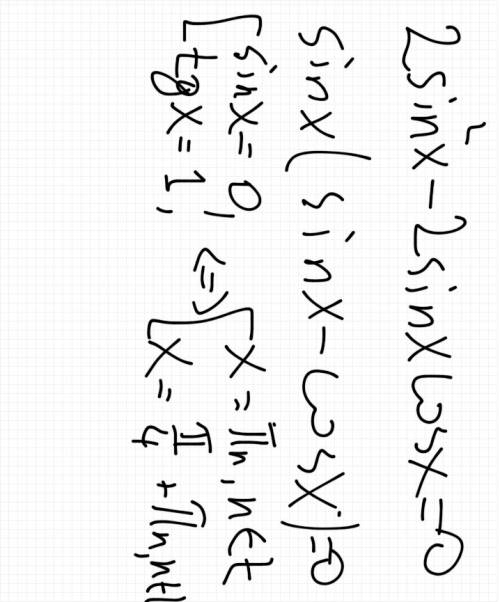 2sin²x - 2sinxcosx = 0
sinx(sinx - cosx) = 0
[sinx = 0, <=> [x = πn, n∈Z
[tgx = 1; [x = π/4 + πn, n∈